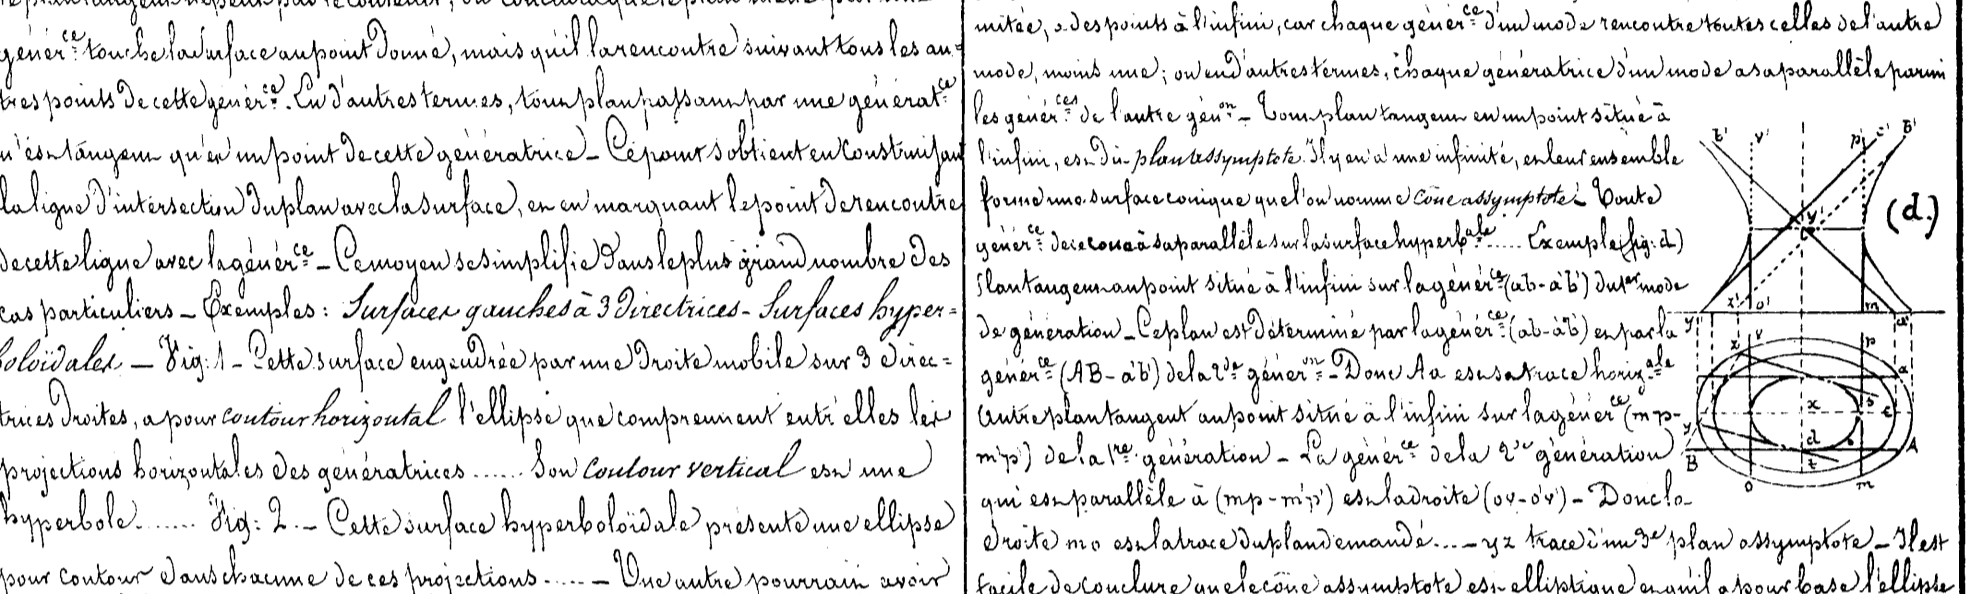 génér.ce touche la surface au point donné, mais qu'il la rencontre suivant tous les au=
tres points de cette génér.ce. En d'autres termes, tout plan passant par une générat.ce
n'est tangent qu'en un point de cette génératrice _ Ce point s'obtient en construisant
la ligne d'intersection du plan avec la surface, et en marquant le point de rencontre
de cette ligne avec la génér.ce _ Ce moyen se simplifie dans le plus grand nombre des
cas particuliers _ Exemples : Surfaces gauches à 3 directrices _ Surfaces hyper=
boloïdales _ Fig: 1 _ Cette surface engendrée par une droite mobile sur 3 direc=
trices droites, a pour contour horizontal l'ellipse que comprennent entr'elles les
projections horizontales des génératrices ...... Son contour vertical est une
hyperbole ....... Fig: 2 _ Cette surface hyperboloïdale présente une ellipse
pour contour dans chacune de ces projections ..... _ Une autre pourrait avoir
mitée, a des points à l'infini, car chaque génér.ce d'un mode rencontre toutes celles de l'autre
mode, moins une ; ou en d'autres termes, chaque génératrice d'un mode a sa parallèle parmi
les génér.ces de l'autre gén.on _ Tout plan tangent en un point situé à
l'infini, est dit plan assymptote. Il y en a une infinité, et leur ensemble
forme une surface conique que l'on nomme cône assymptote _ Toute
génér.ce de ce cône a sa parallèle sur la surface hyperb.ale ..... Exemple (fig: d)
Plan tangent au point situé à l'infini sur la génér.ce (ab - a'b') du 1er mode
de génération _ Ce plan est déterminé par la génér.ce (ab - a'b') et par la
génér.ce (AB - a'b') de la 2de génér.on _ Donc Aa est sa trace horiz.ale
Autre plan tangent au point situé à l'infini sur la génér.ce (mp -
m'p') de la 1re génération _ La génér.ce de la 2de génération
qui est parallèle à (mp - m'p') est la droite (ov - o'v') _ Donc la
droite mo est la trace du plan demandé .... _ yz trace d'un 3e plan assymptote _ Il est
facile de conclure que le cône assymptote est elliptique et qu'il a pour base l'ellipse
(d.)